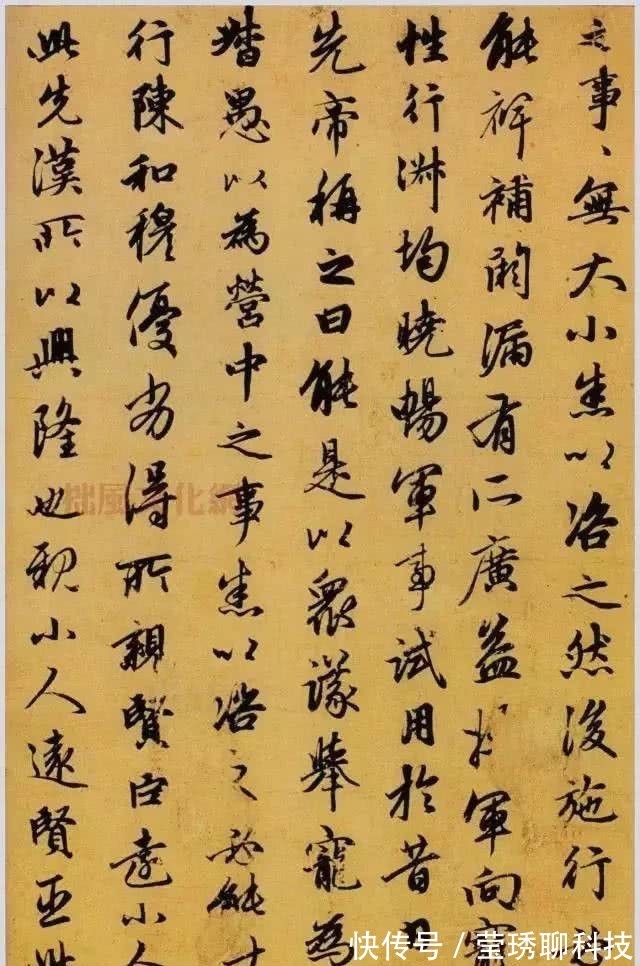 之事、無大小悉以咨之然後施行必
能裨補闕漏有所廣益將軍向寵
性行淑均曉暢軍事試用於昔日
先帝稱之曰能是以衆議舉寵為
督愚以為營中之事悉以咨之必能
行陳和穆優劣得所親賢臣遠小人
此先漢所以興隆也親小人遠賢臣此
拙風文化網
快传号 / 莹琇聊科技